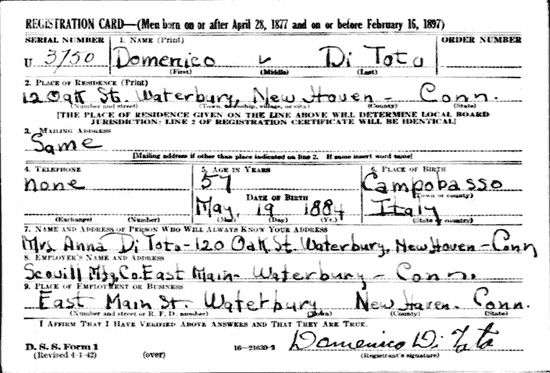 REGISTRATION CARD—(Men born on or after April 28, 1877 and on or before February 16, 1897)
SERIAL NUMBER 1. NAME (Print) ORDER NUMBER
U 3750 Domenico Di Toto
(First) (Middle) (Last)
2. PLACE OF RESIDENCE (Print)
120 Oak St. Waterbury, New Haven Conn.
(Number and street) (Town, township, village, or city) (County) (State)
[THE PLACE OF RESIDENCE GIVEN ON THE LINE ABOVE WILL DETERMINE LOCAL BOARD
JURISDICTION; LINE 2 OF REGISTRATION CERTIFICATE WILL BE IDENTICAL]
3. MAILING ADDRESS
Same
[Mailing address if other than place indicated on line 2. If same insert word same]
4. TELEPHONE 5. AGE IN YEARS 6. PLACE OF BIRTH
none 57 Campobasso
DATE OF BIRTH (Town or county)
May, 19 1884 Italy
(Exchange) (Number) (Mo.) (Day) (Yr.) (State or country)
7. NAME AND ADDRESS OF PERSON WHO WILL ALWAYS KNOW YOUR ADDRESS
Mrs. Anna Di Toto - 120 Oak St. Waterbury, New Haven - Conn
8. EMPLOYER'S NAME AND ADDRESS
Scovill Mfg. Co. East Main - Waterbury - Conn.
9. PLACE OF EMPLOYMENT OR BUSINESS
East Main St. Waterbury New Haven. Conn.
(Number and street or R. F. D. number) (Town) (County) (State)
I AFFIRM THAT I HAVE VERIFIED ABOVE ANSWERS AND THAT THEY ARE TRUE.
D. S. S. Form 1
(Revised 4-1-42) (over) 16—21630-2 Domenico Di Toto
(Registrant's signature)